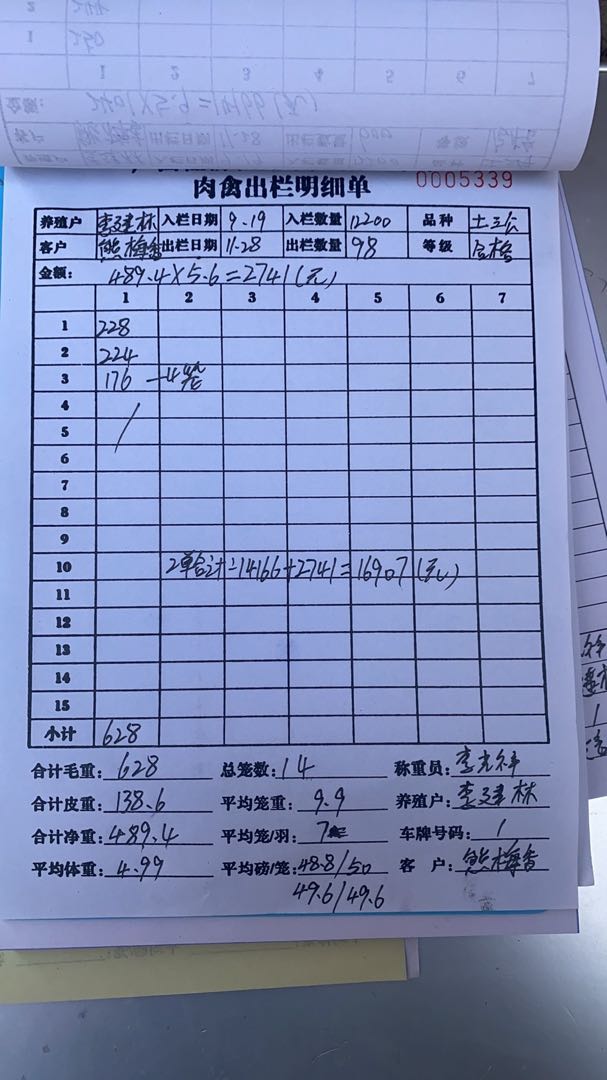 肉禽出栏明细单 0005339
养殖户 李建林 入栏日期 9.19 入栏数量 12200 品种 土三公
客户 熊梅香 出栏日期 11-28 出栏数量 98 等级 合格
金额: 489.4×5.6=2741(元)
1 2 3 4 5 6 7
1 228
2 224
3 176 -4笼
4
5
6
7
8
9
10 2单合计=14166+2741=16907(元)
11
12
13
14
15
小计 628
合计毛重: 628 总笼数: 14 称重员:
合计皮重: 138.6 平均笼重: 9.9 养殖户: 李建林
合计净重: 489.4 平均笼/羽: 7 车牌号码: /
平均体重: 4.99 平均磅/笼: 48.8/50 客 户: 熊梅香
49.6/49.6